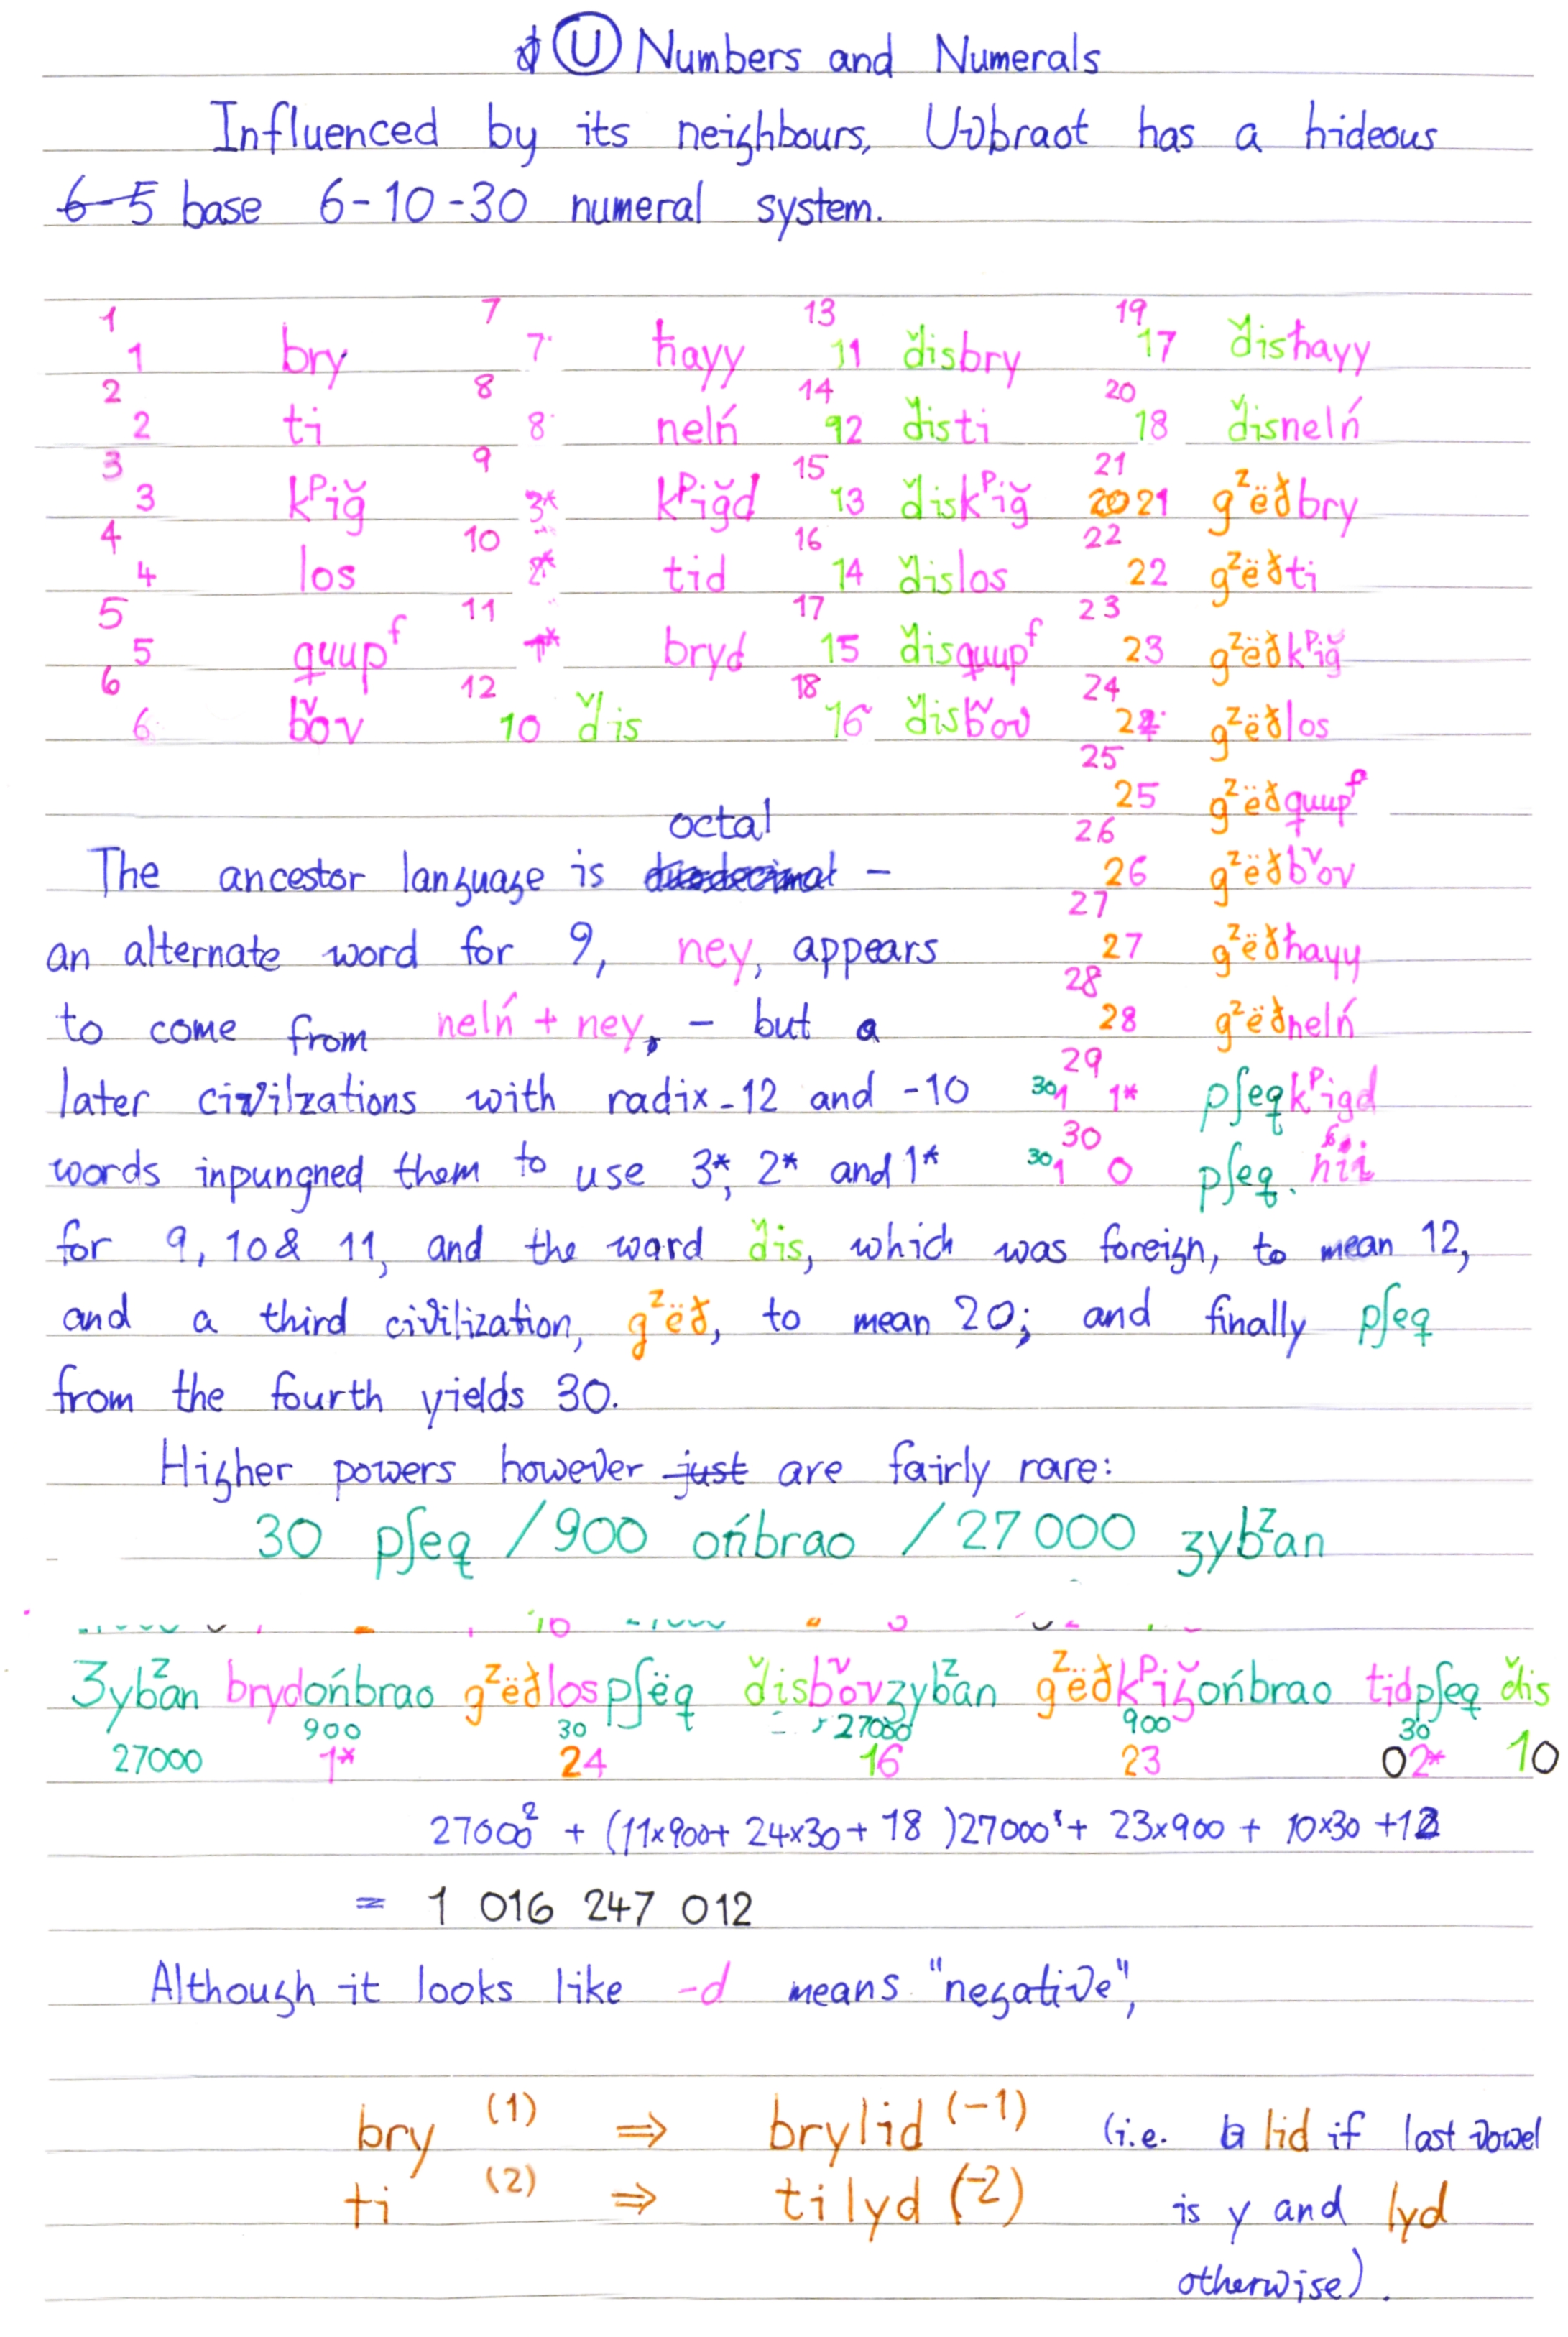 Ⓤ Numbers and Numerals
Influenced by its neighbours, Uʋbraot has a hideous
6-5 base 6-10-30 numeral system.
1 7 13 19
1 bry 7 ħayy 11 d̆isbry 17 d̆isħayy
2 8 14 20
2 ti 8 nelń 12 d̆isti 18 d̆isnelń
3 9 15 21
3 kᵖiğ 3* kᵖiğd 13 d̆iskᵖiğ 2021 gᶻëðbry
4 10 16 22
4 los 2* tid 14 d̆islos 22 gᶻëðti
5 11 17 23
5 quupᶠ 1* bryd 15 d̆isquupᶠ 23 gᶻëðkᵖiğ
6 12 18 24
6 bᵛov 10 d̆is 16 d̆isbᵛov 24 gᶻëðlos
25
25 gᶻëðquupᶠ
26
26 gᶻëðbᵛov
27
27 gᶻëðħayy
28
28 gᶻëðnelń
29
30 1 1* pʃeqkᵖigd
30
30 1 0 pʃeq.
octal
The ancestor language is duodecimal –
an alternate word for 9, ney, appears
to come from nelń + ney, – but a
later civilzations with radix-12 and -10
words inpungned them to use 3*, 2* and 1*
for 9, 10 & 11, and the word d̆is, which was foreign, to mean 12,
and a third civilization, gᶻëð, to mean 20; and finally pʃeq
from the fourth yields 30.
Higher powers however just are fairly rare:
30 pʃeq / 900 ońbrao / 27 000 ʒybᶻan
10
Ʒybᶻan brydońbrao gᶻëðlospʃëq d̆isbᵛovʒybᶻan gᶻëðkᵖiğońbrao tidpʃeq d̆is
900 30 27000 900 30
27000 1* 24 16 23 02* 10
27000² + (11×900+ 24×30+ 18 )27000¹+ 23×900 + 10×30 +12
= 1 016 247 012
Although it looks like -d means "negative",
bry (1) ⇒ brylid (-1) (i.e. lid if last vowel
ti (2) ⇒ tilyd (-2) is y and lyd
otherwise).